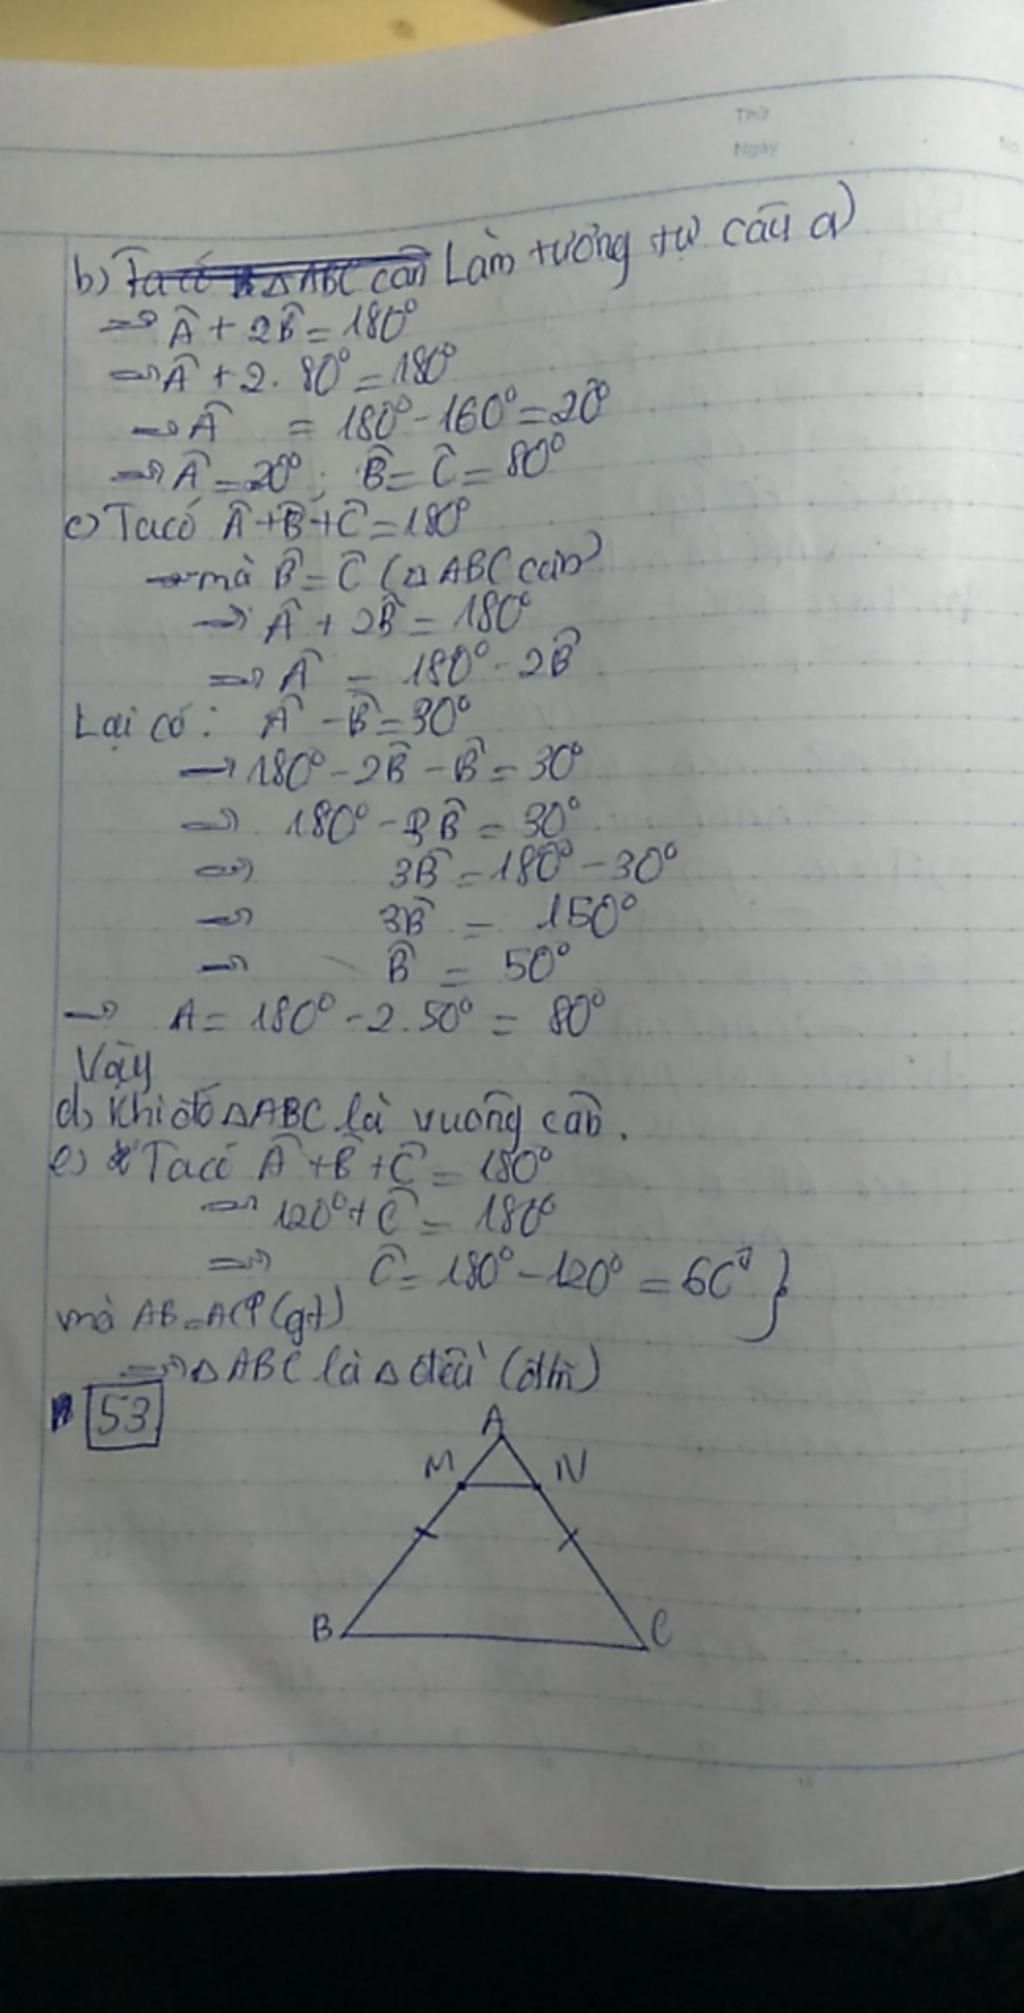 Thứ
Ngày
No
b) Ta có △ABC cân Làm tương tự câu a)
⇒ Â + 2B̂ = 180°
⇒ Â + 2. 80° = 180°
⇒ Â = 180° - 160° = 20°
⇒ Â = 20° ; B̂ = Ĉ = 80°
c) Ta có Â + B̂ + Ĉ = 180°
mà B̂ = Ĉ (△ABC cân)
⇒ Â + 2B̂ = 180°
⇒ Â = 180° - 2B̂
Lại có: Â - B̂ = 30°
⇒ 180° - 2B̂ - B̂ = 30°
⇒ 180° - 3B̂ = 30°
⇒ 3B̂ = 180° - 30°
⇒ 3B̂ = 150°
⇒ B̂ = 50°
⇒ A = 180° - 2.50° = 80°
Vậy
d) Khi đó △ABC là vuông cân.
e) Ta có Â + B̂ + Ĉ = 180°
⇒ 120° + Ĉ = 180°
⇒ Ĉ = 180° - 120° = 60° }
mà AB = AC (gt)
⇒ △ABC là △ đều (đhn)
53
A
M N
B C